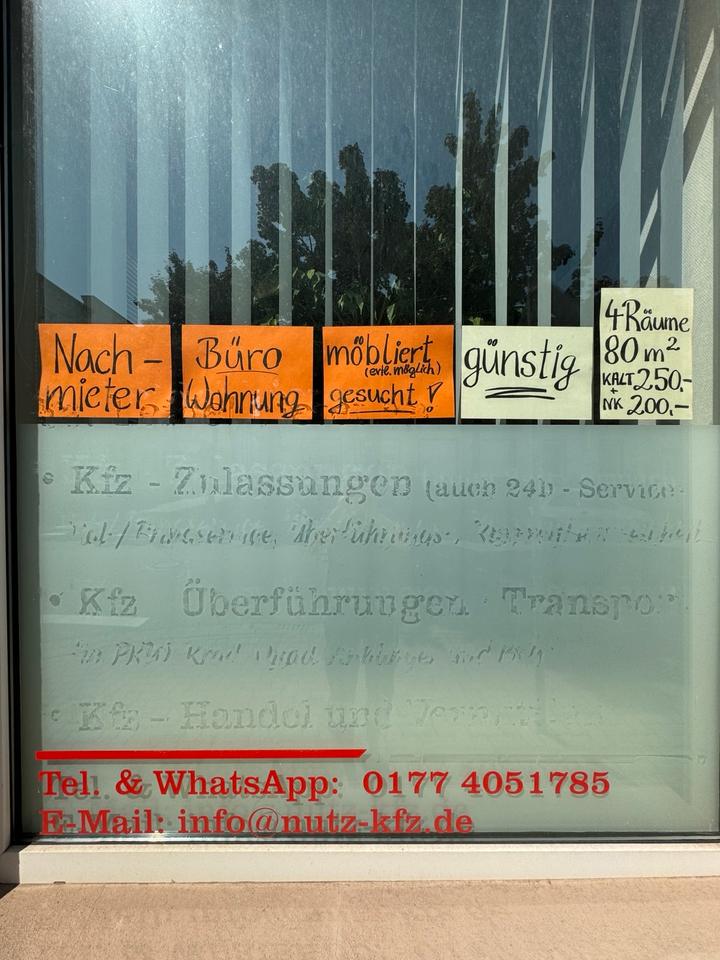 Nach-
mieter
Büro
Wohnung
möbliert
(evtl. möglich)
gesucht!
günstig
4 Räume
80 m²
KALT 250.-
+
NK 200.-
• Kfz - Zulassungen (auch 24h - Service
Überführungs-,
• Kfz Überführungen Transpor
PKW, Krad, Quad, Anhänger und
Kfz - Handel und
Tel. & WhatsApp: 0177 4051785
E-Mail: info@nutz-kfz.de